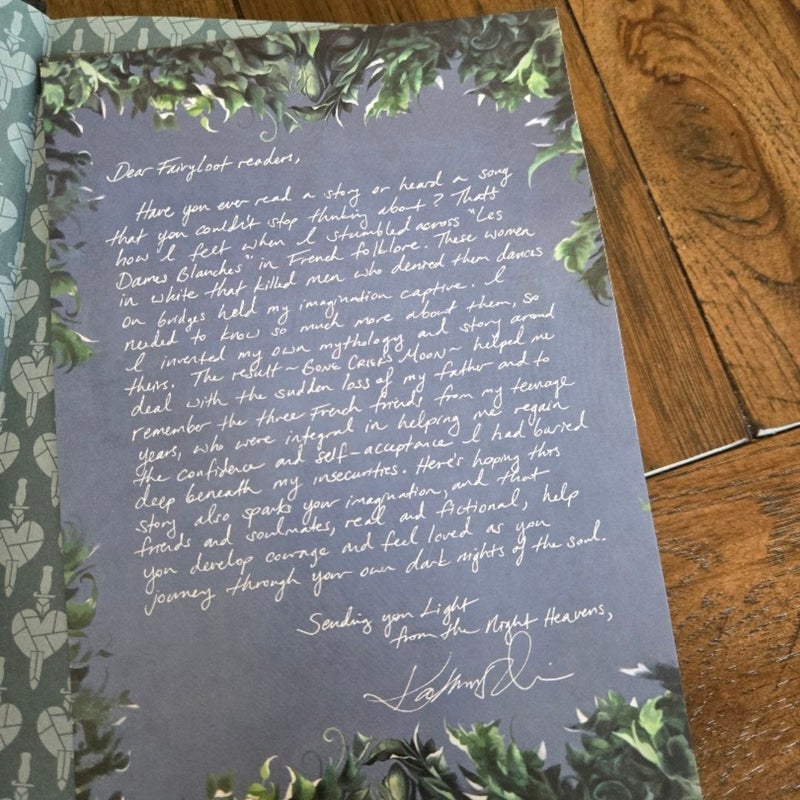 Dear Fairyloot readers,
Have you ever read a story or heard a song
that you couldn't stop thinking about? That's
how I felt when I stumbled across "Les
Dames Blanches" in French folklore. These women
in white that killed men who denied them dances
on bridges held my imagination captive. I
needed to know so much more about them, so
I invented my own mythology and story around
theirs. The result ~ BONE CRIER'S MOON ~ helped me
deal with the sudden loss of my father and to
remember the three French friends from my teenage
years, who were integral in helping me regain
the confidence and self-acceptance I had buried
deep beneath my insecurities. Here's hoping this
story also sparks your imagination, and that
friends and soulmates, real and fictional, help
you develop courage and feel loved as you
journey through your own dark nights of the soul.
Sending you Light
from the Night Heavens,